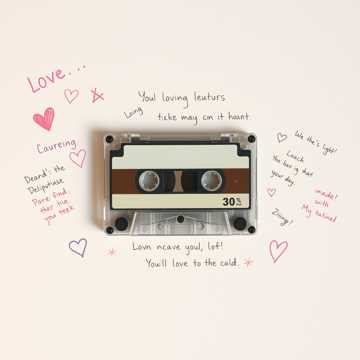 Love...
Youl loving leuturs
Loing
ticke may cin it hoant.
Caureing
Deard's: the
Deliputiase
Pare find:
thar tiue
you teek
We the's light!
Leach
You bar is that
your day
made!
with
My natured
Zning!
30
Lovn ncave youl, lof!
You'll love to the cald.